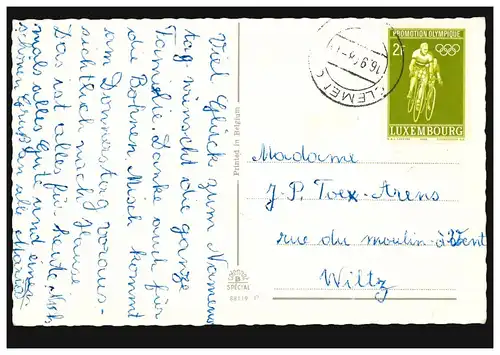 Viel Glück zum Namens
tag wünscht die ganze
Familie. Danke auch für
die Bohnen. Misch kommt
am Donnerstag voraus-
sichtlich nach Hause
Das ist alles für heute. Noch
mals alles Gute und einen
schönen Gruß an alle
Printed in Belgium
SPECIAL
PROMOTION OLYMPIQUE
2F
LUXEMBOURG
Madame
J. P. Toex-Arens
rue du moulin-à-Vent
Wiltz